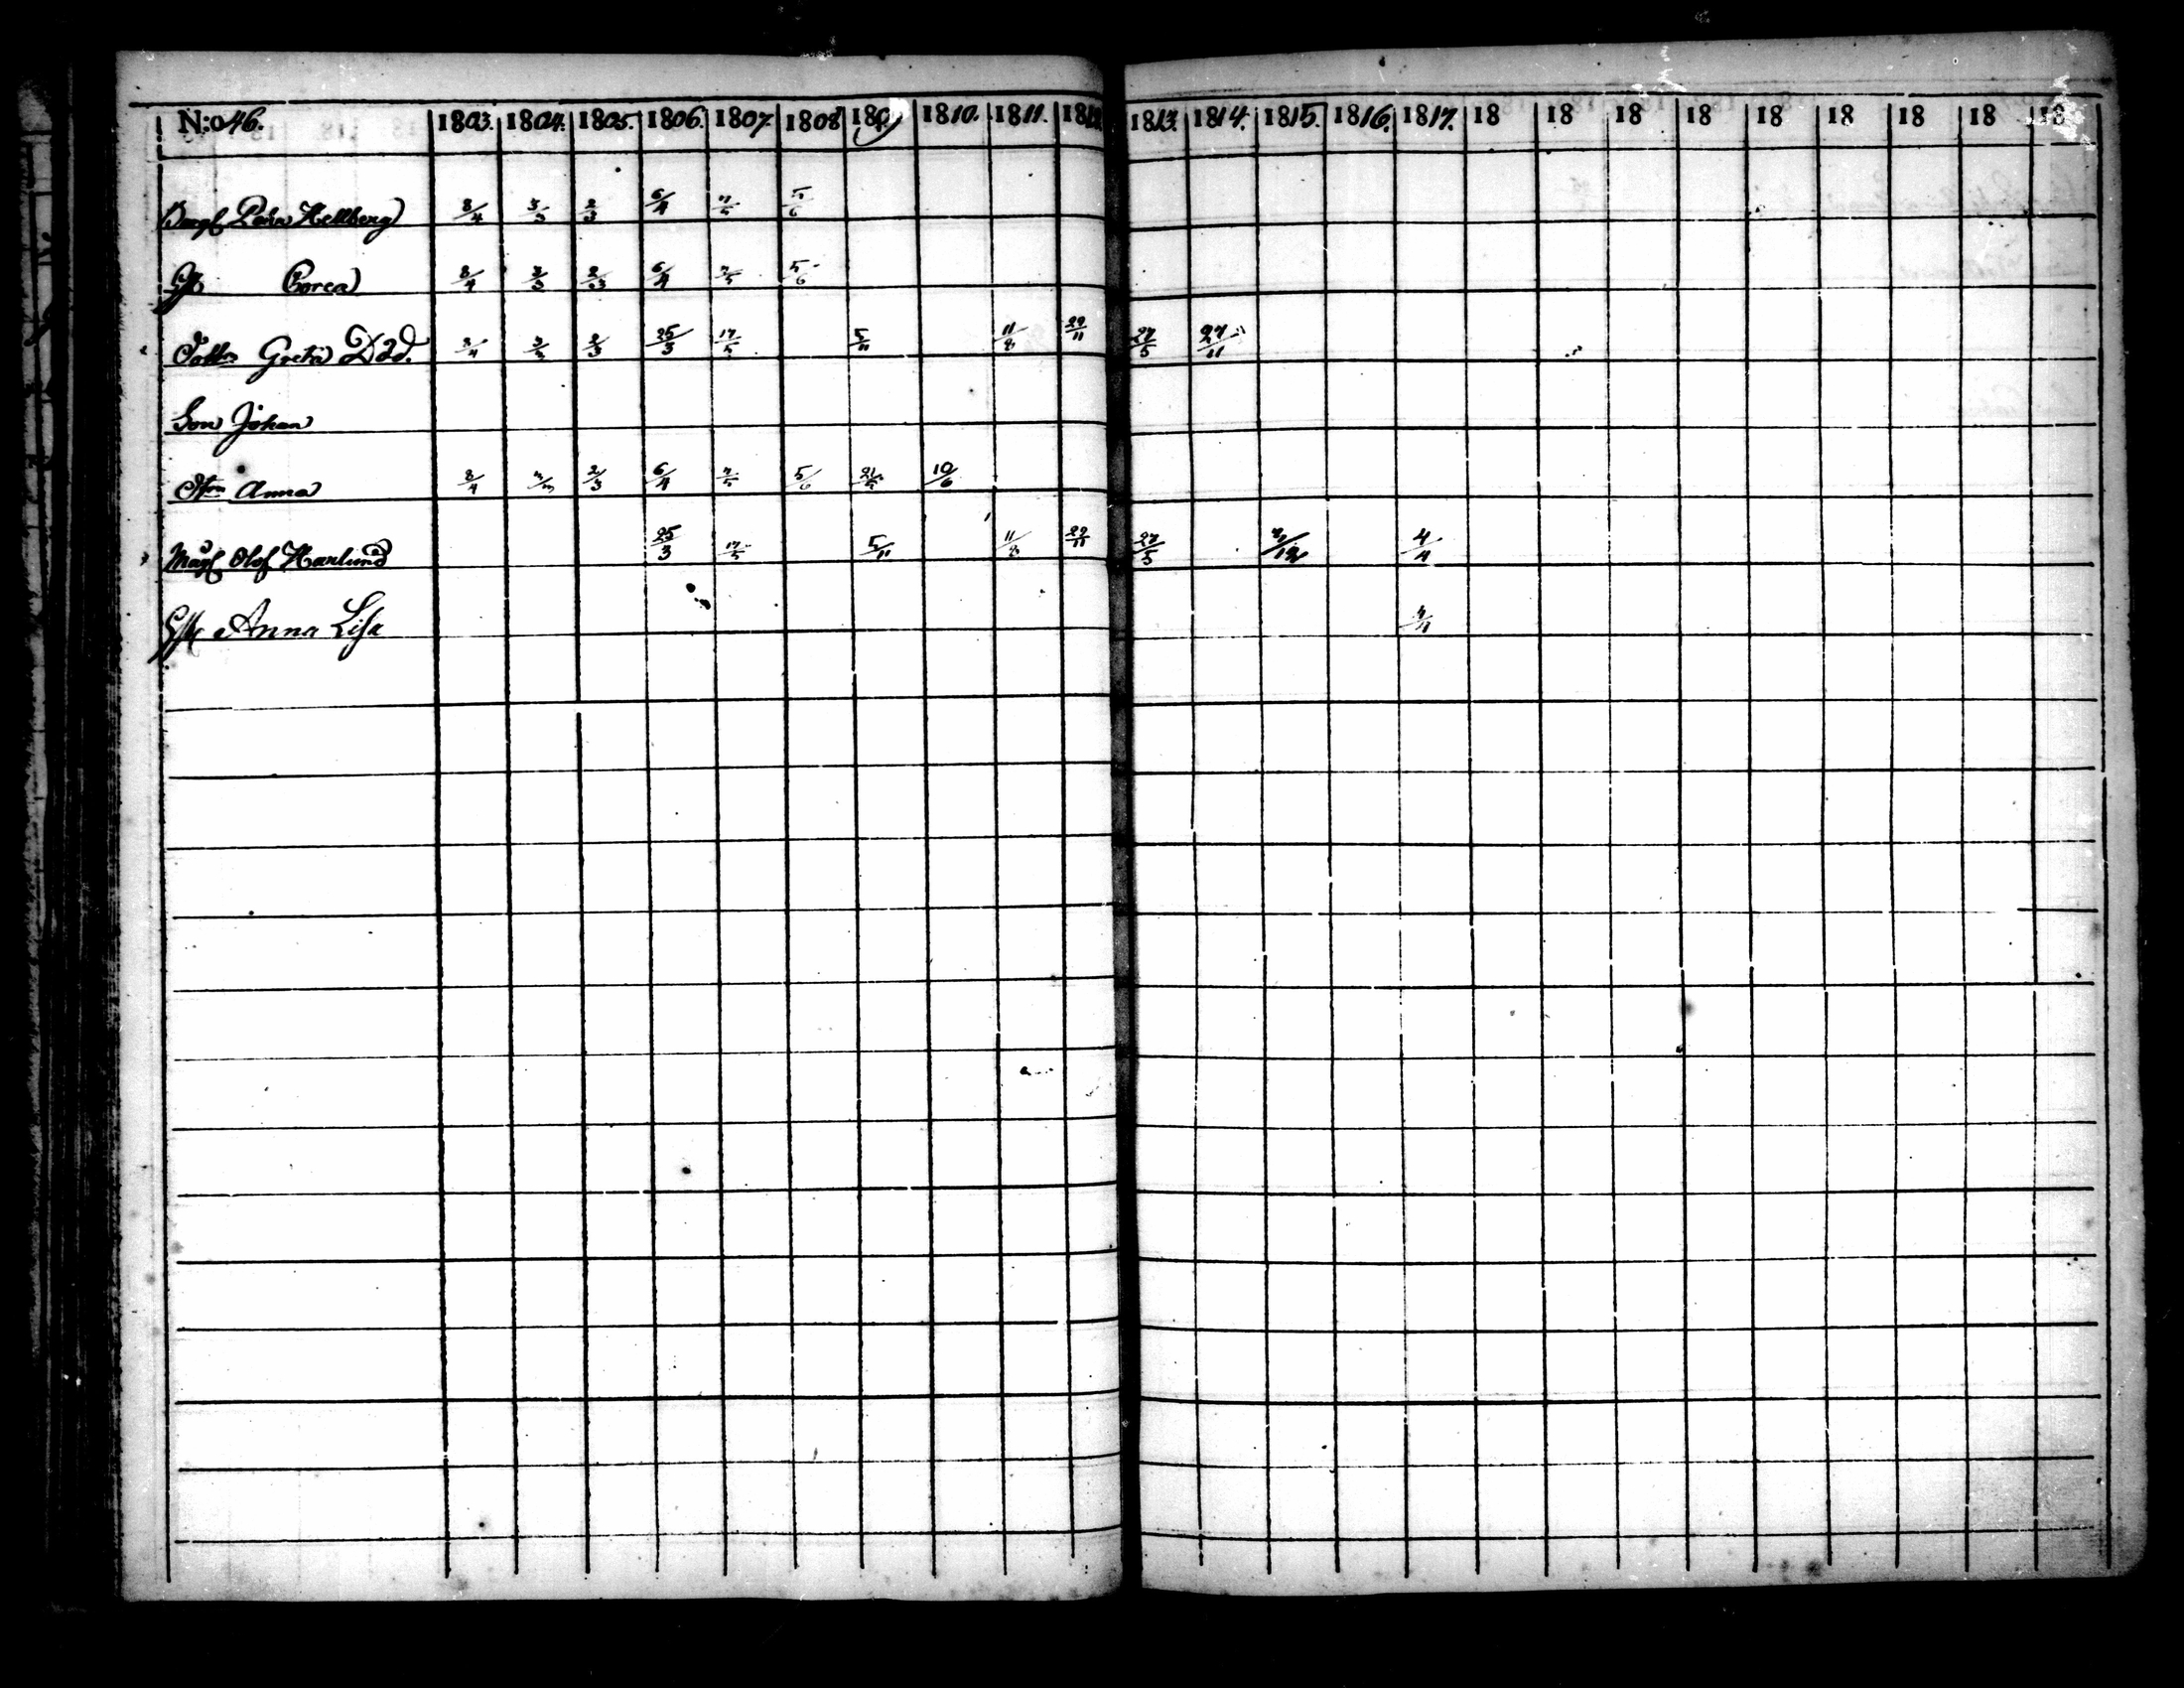 N:o 46. 1803. 1804. 1805. 1806. 1807 1808 1809 1810. 1811. 1812. 1813. 1814. 1815. 1816. 1817. 18 18 18 18 18 18 18 18 18
Hellberg 3/4 3/3 2/3 6/4 7/5 5/6
3/4 3/3 2/3 6/4 7/5 5/6
Greta Död. 3/4 3/3 2/3 25/3 17/5 5/11 11/8 22/11 27/5 27/11
Son Johan
Anna 3/4 2/3 6/4 7/5 5/6 10/6
Olof Harlund 25/3 17/5 5/11 11/8 22/11 27/5 3/12 4/4
Anna Lisa